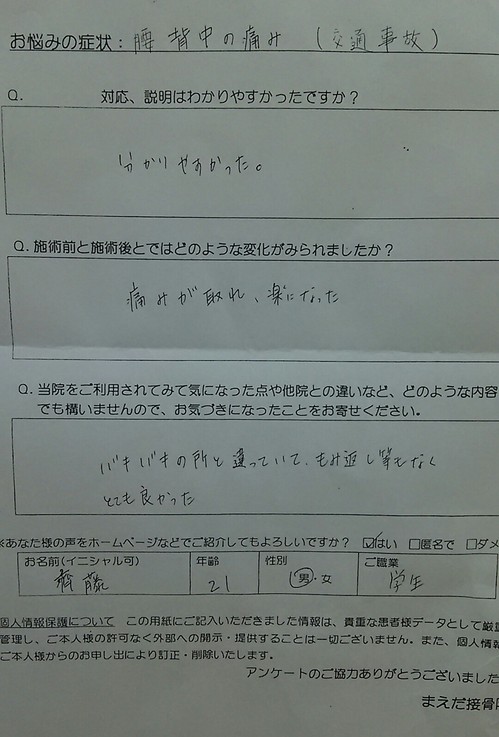 お悩みの症状：腰 背中の痛み (交通事故)
Q. 対応、説明はわかりやすかったですか？
分かりやすかった。
Q. 施術前と施術後とではどのような変化がみられましたか？
痛みが取れ、楽になった
Q. 当院をご利用されてみて気になった点や他院との違いなど、どのような内容
でも構いませんので、お気づきになったことをお寄せください。
バキバキの所と違っていて、もみ返し等もなく
とても良かった
※あなた様の声をホームページなどでご紹介してもよろしいですか？ ☑はい □匿名で □ダメ
お名前(イニシャル可) 年齢 性別 ご職業
齊藤 21 男・女 学生
個人情報保護について この用紙にご記入いただきました情報は、貴重な患者様データとして厳重
管理し、ご本人様の許可なく外部への開示・提供することは一切ございません。また、個人情報
ご本人様からのお申し出により訂正・削除いたします。
アンケートのご協力ありがとうございました
まえだ接骨院